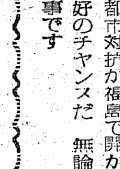 都市対抗が福島で開か
好のチヤンスだ　無論
事です